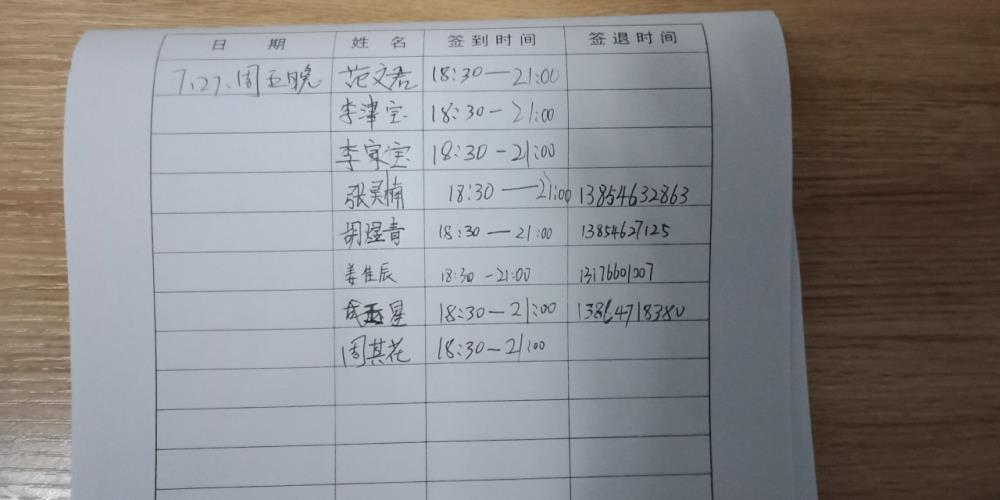 日 期 姓 名 签到时间 签退时间
7.27.周五晚 范文君 18:30—21:00
李津宝 18:30—21:00
李家宝 18:30—21:00
张昊楠 18:30—21:00 13854632863
胡煜青 18:30—21:00 13854627125
姜佳辰 18:30—21:00 13176601007
星 18:30—21:00 13864718380
周其花 18:30—21:00